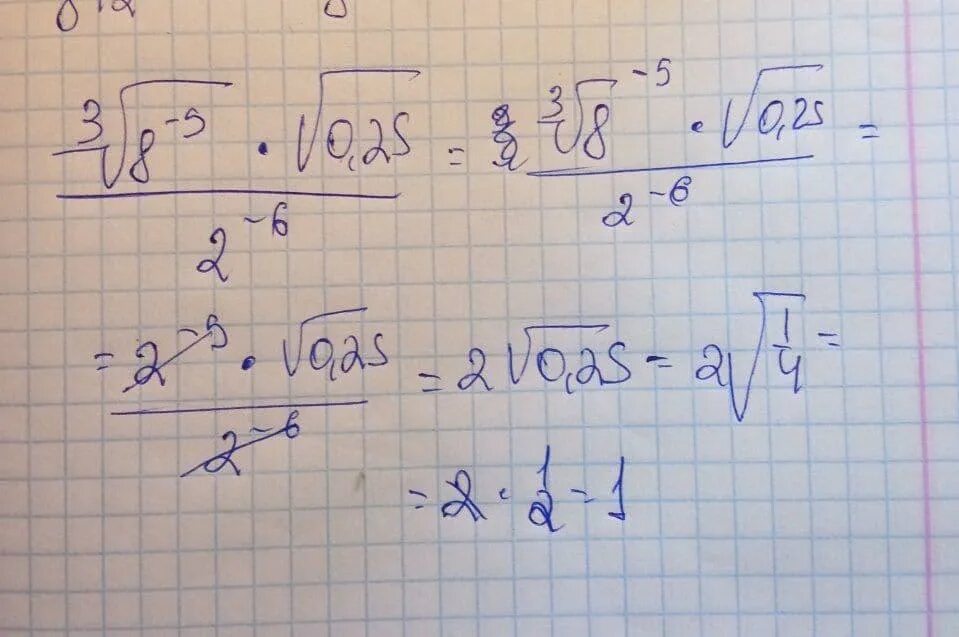 ∛(8^-5) · √0,25 / 2^-6 = (∛8)^-5 · √0,25 / 2^-6 =
= 2^-5 · √0,25 / 2^-6 = 2√0,25 = 2√(1/4) =
= 2 · 1/2 = 1